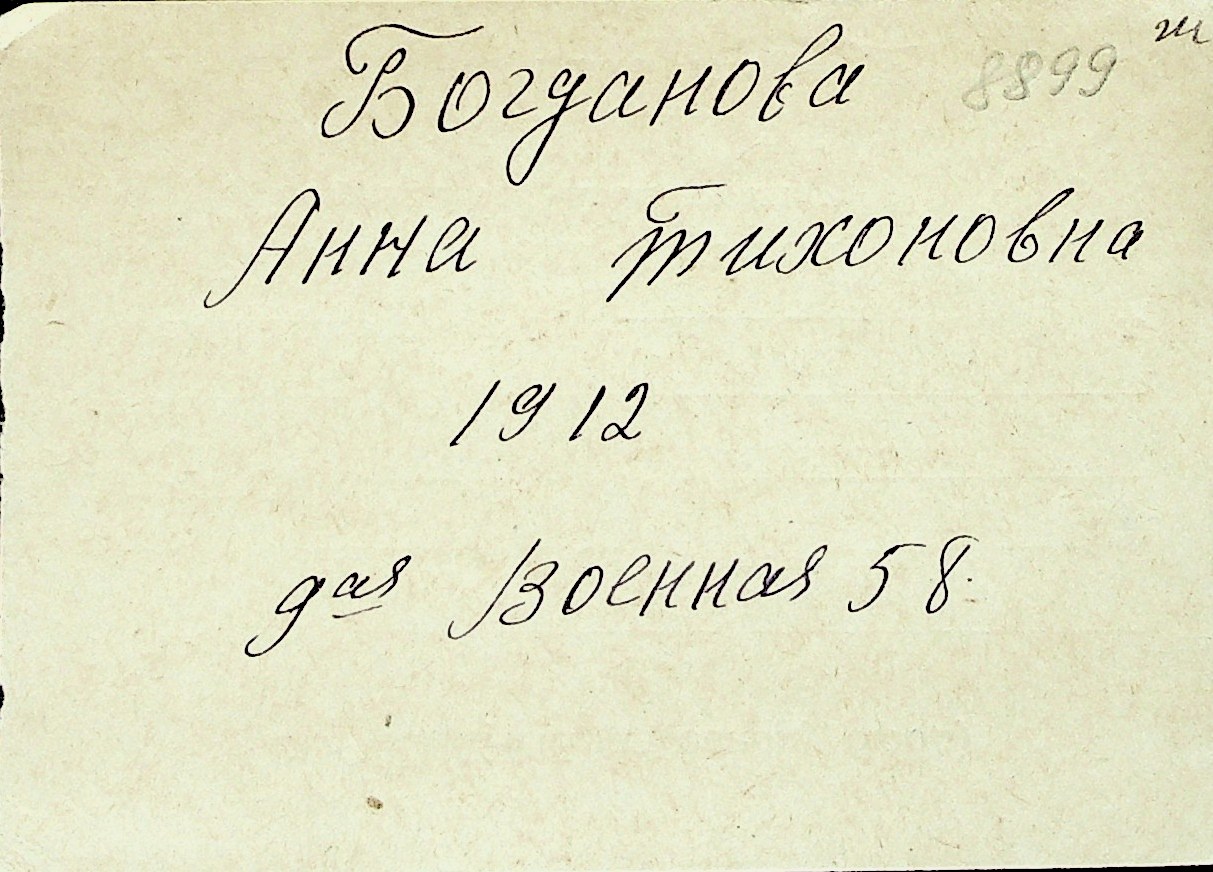 Богданова 8899
Анна Тихоновна
1912
9ая Военная 58